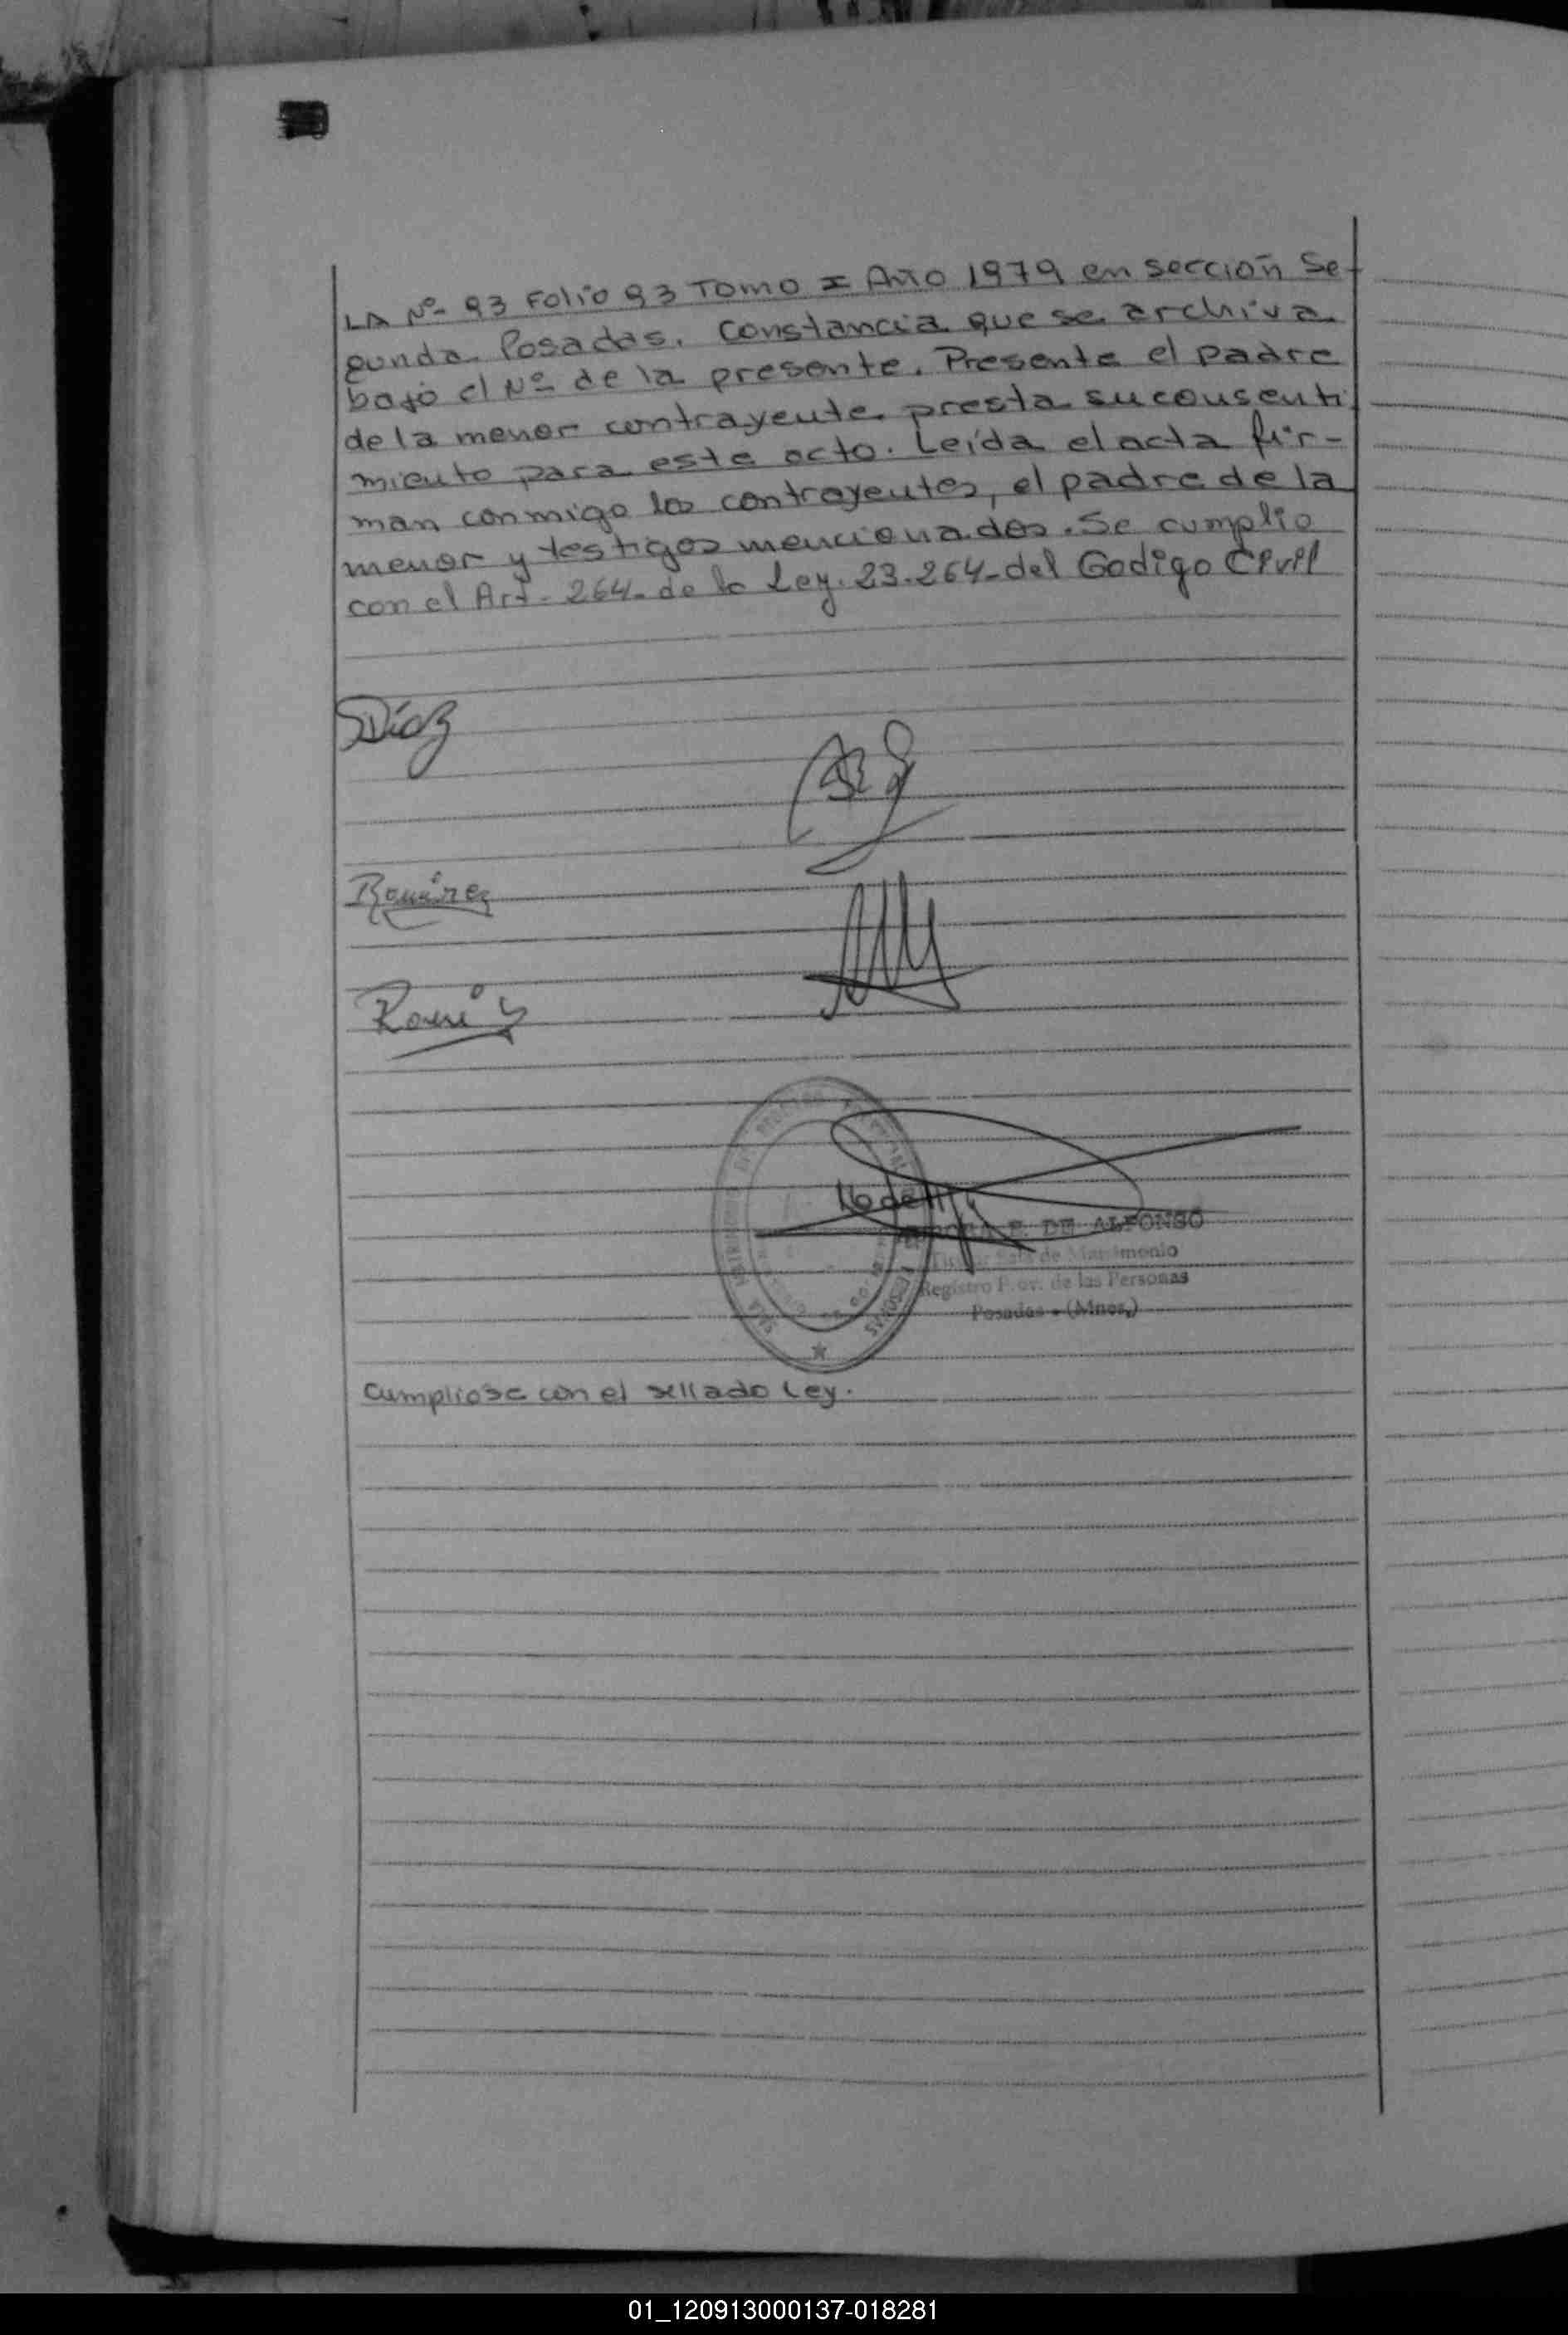 LA Nº 93 Folio 93 Tomo I Año 1979 en sección Se-
gunda Posadas. Constancia que se archiva
bajo el Nº de la presente. Presente el padre
de la menor contrayente presta su consenti
miento para este acto. Leída el acta fir-
man conmigo los contrayentes, el padre de la
menor y testigos mencionados. Se cumplio
con el Art. 264 de la Ley. 23.264 del Codigo Civil
Díaz
Ramírez
DE ALFONSO
de Matrimonio
Registro Prov. de las Personas
Posadas - (Mnes.)
Cumpliose con el sellado Ley.
01_120913000137-018281